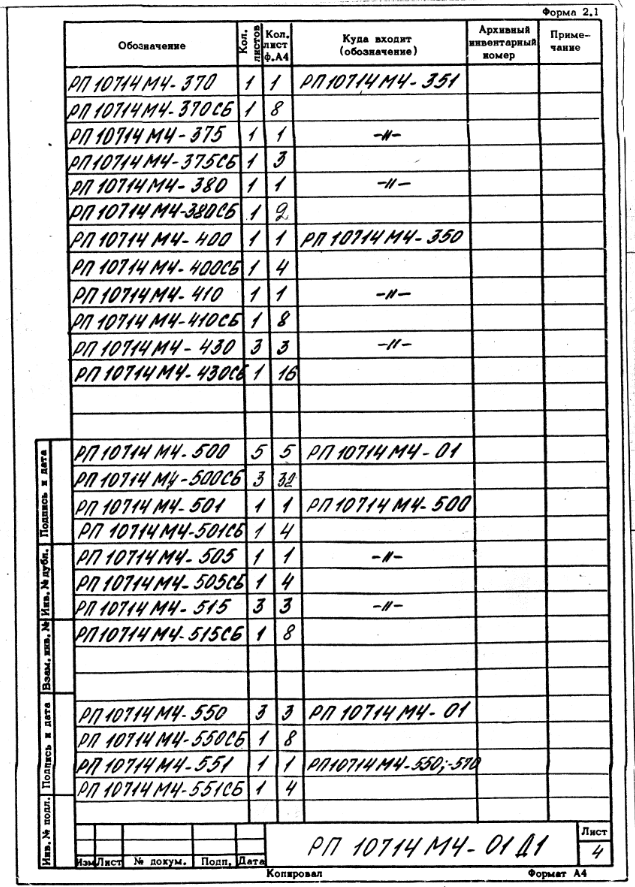 Форма 2.1
Обозначение Кол. листов Кол. лист ф.А4 Куда входит (обозначение) Архивный инвентарный номер Примечание
РП 10714 М4-370 1 1 РП 10714 М4-351
РП 10714 М4-370СБ 1 8
РП 10714 М4-375 1 1 -//-
РП 10714 М4-375СБ 1 3
РП 10714 М4-380 1 1 -//-
РП 10714 М4-380СБ 1 2
РП 10714 М4-400 1 1 РП 10714 М4-350
РП 10714 М4-400СБ 1 4
РП 10714 М4-410 1 1 -//-
РП 10714 М4-410СБ 1 8
РП 10714 М4-430 3 3 -//-
РП 10714 М4-430СБ 1 16
РП 10714 М4-500 5 5 РП 10714 М4-01
РП 10714 М4-500СБ 3 32
РП 10714 М4-501 1 1 РП 10714 М4-500
РП 10714 М4-501СБ 1 4
РП 10714 М4-505 1 1 -//-
РП 10714 М4-505СБ 1 4
РП 10714 М4-515 3 3 -//-
РП 10714 М4-515СБ 1 8
РП 10714 М4-550 3 3 РП 10714 М4-01
РП 10714 М4-550СБ 1 8
РП 10714 М4-551 1 1 РП10714 М4-550;-570
РП 10714 М4-551СБ 1 4
Подпись и дата
Инв. № дубл.
Взам. инв. №
Подпись и дата
Инв. № подл.
Изм Лист № докум. Подп. Дата
РП 10714 М4-01 Д1
Лист
4
Копировал Формат А4